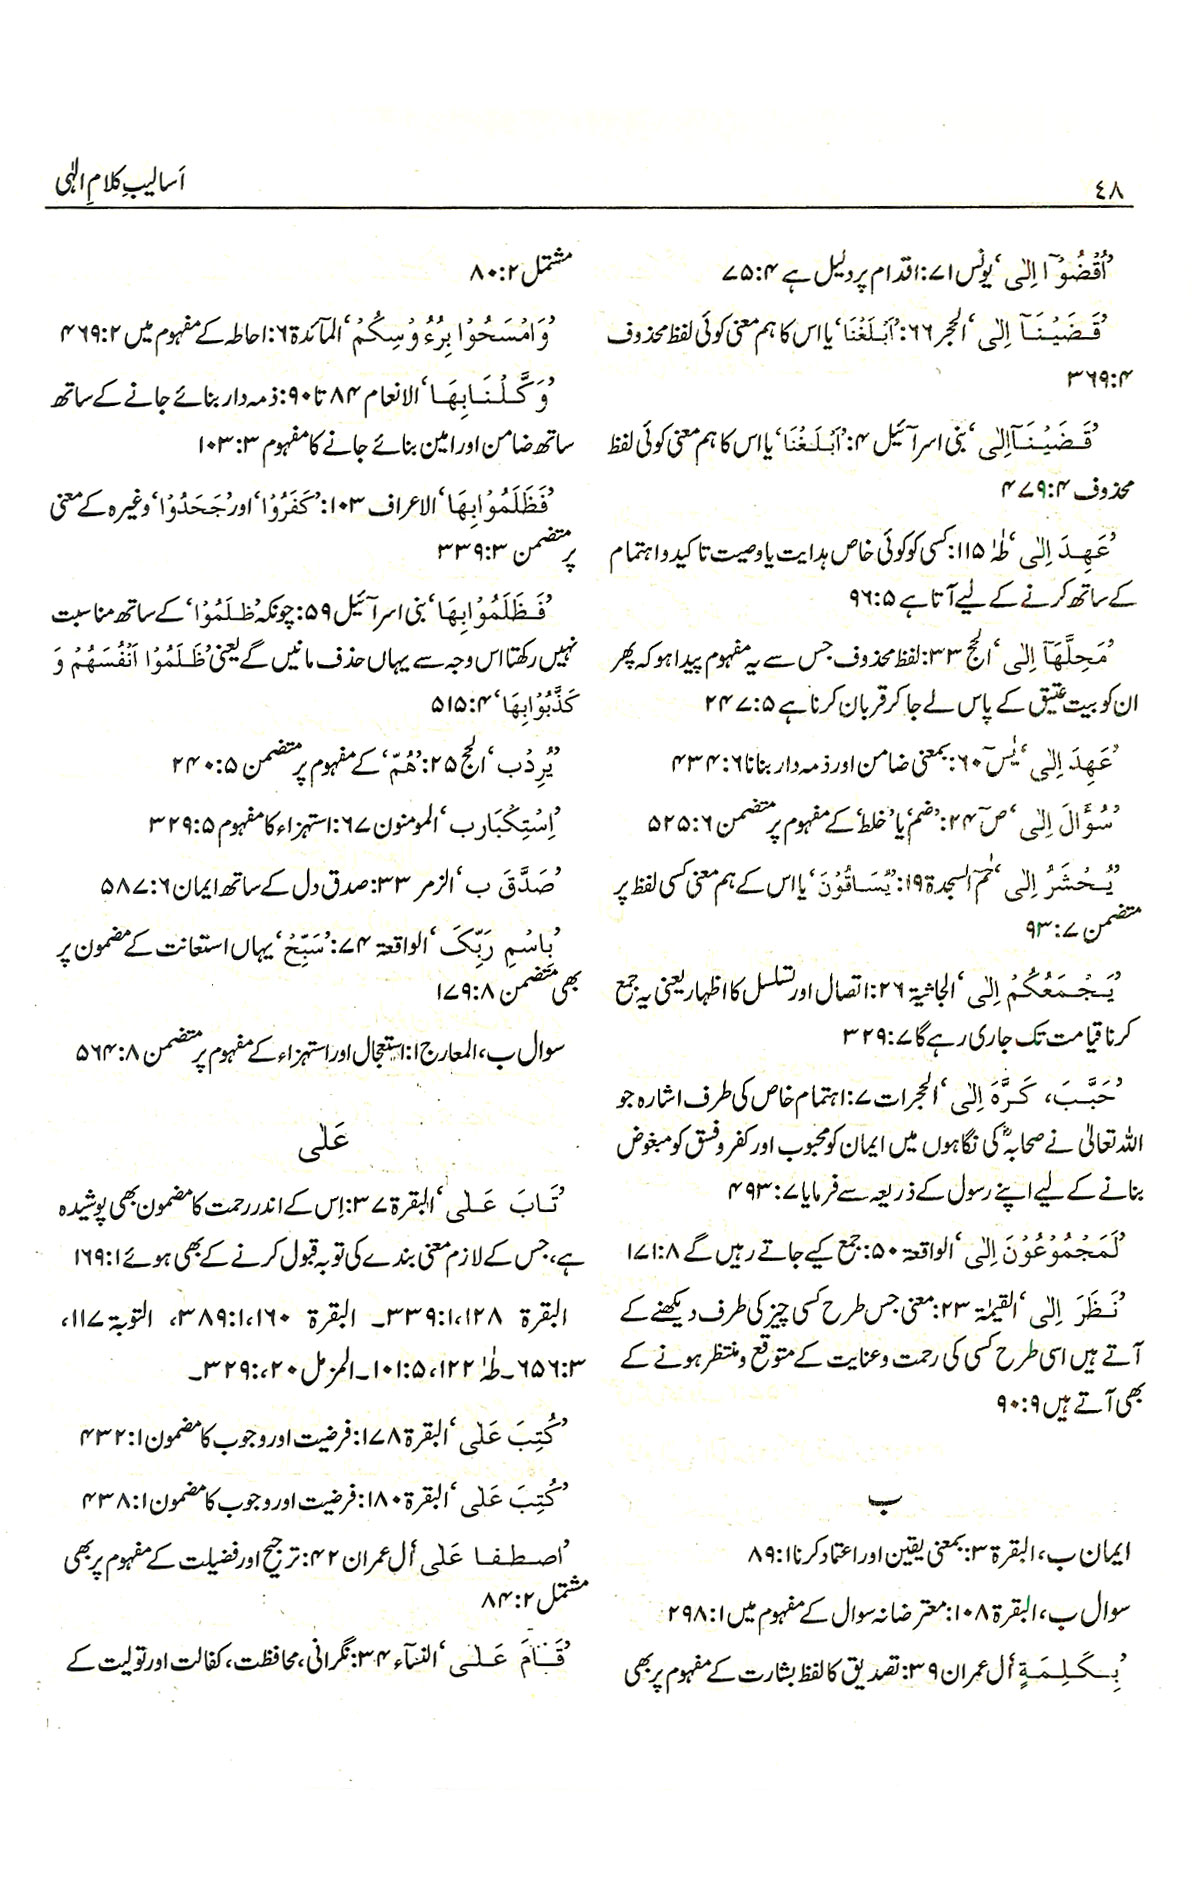 ٤٨
اَسالیبِ کلامِ الٰہی
’اُقْضُوْآ اِلٰی‘ یونس ۷۱: اقدام پر دلیل ہے ۴:۷۵
’قَضَیْنَآ اِلٰی‘ الحجر ۶۶: ’اَبْلَغْنَا‘ یا اس کا ہم معنی کوئی لفظ محذوف
۴:۳۶۹
’قَضَیْنَآاِلٰی‘ بنی اسرآئیل ۴: ’اَبْلَغْنَا‘ یا اس کا ہم معنی کوئی لفظ
محذوف ۴:۴۷۹
’عَھِدَ اِلٰی‘ طٰہٰ ۱۱۵: کسی کو کوئی خاص ہدایت یا وصیت تاکید و اہتمام
کے ساتھ کرنے کے لیے آتا ہے ۵:۹۶
’مَحِلُّھَآ اِلٰی‘ الحج ۳۳: لفظ محذوف جس سے یہ مفہوم پیدا ہو کہ پھر
ان کو بیت عتیق کے پاس لے جا کر قربان کرنا ہے ۵:۲۴۷
’عَھِدَ اِلٰی‘ یٰسٓ ۶۰: بمعنی ضامن اور ذمہ دار بنانا ۶:۴۳۴
’سُؤَالَ اِلٰی‘ صٓ ۲۴: ’ضم‘ یا ’خلط‘ کے مفہوم پر متضمن ۶:۵۲۵
’یُحْشَرُ اِلٰی‘ حٰمٓ السجدۃ ۱۹: ’یُسَاقُوْنَ‘ یا اس کے ہم معنی کسی لفظ پر
متضمن ۷:۹۳
’یَجْمَعُکُمْ اِلٰی‘ الجاثیۃ ۲۶: اتصال اور تسلسل کا اظہار یعنی یہ جمع
کرنا قیامت تک جاری رہے گا ۷:۳۲۹
’حَبَّبَ، کَرَّہَ اِلٰی‘ الحجرات ۷: اہتمام خاص کی طرف اشارہ جو
اللہ تعالیٰ نے صحابہؓ کی نگاہوں میں ایمان کو محبوب اور کفر و فسق کو مبغوض
بنانے کے لیے اپنے رسول کے ذریعہ سے فرمایا ۷:۴۹۳
’لَمَجْمُوْعُوْنَ اِلٰی‘ الواقعۃ ۵۰: جمع کیے جاتے رہیں گے ۸:۱۷۱
’نَظَرَ اِلٰی‘ القیٰمۃ ۲۳: معنی جس طرح کسی چیز کی طرف دیکھنے کے
آتے ہیں اسی طرح کسی کی رحمت و عنایت کے متوقع و منتظر ہونے کے
بھی آتے ہیں ۹:۹۰
ب
ایمان ب، البقرۃ ۳: بمعنی یقین اور اعتماد کرنا ۱:۸۹
سوال ب، البقرۃ ۱۰۸: معترضانہ سوال کے مفہوم میں ۱:۲۹۸
’بِکَلِمَۃٍ اٰل عمران ۳۹: تصدیق کا لفظ بشارت کے مفہوم پر بھی
مشتمل ۲:۸۰
’وَامْسَحُوْا بِرُءُوْسِکُمْ‘ المآئدۃ ۶: احاطہ کے مفہوم میں ۲:۴۶۹
’وَکَّلْنَا بِھَا‘ الانعام ۸۴ تا ۹۰: ذمہ دار بنائے جانے کے ساتھ
ساتھ ضامن اور امین بنائے جانے کا مفہوم ۳:۱۰۳
’فَظَلَمُوْابِھَا‘ الاعراف ۱۰۳: ’کَفَرُوْا‘ اور ’جَحَدُوْا‘ وغیرہ کے معنی
پر متضمن ۳:۳۳۹
’فَظَلَمُوْابِھَا‘ بنی اسرآئیل ۵۹: چونکہ ’ظَلَمُوْا‘ کے ساتھ مناسبت
نہیں رکھتا اس وجہ سے یہاں حذف مانیں گے یعنی ’ظَلَمُوْا اَنْفُسَھُمْ وَ
کَذَّبُوْابِھَا‘ ۴:۵۱۵
’یُرِدْ ب‘ الحج ۲۵: ’ھُمّ‘ کے مفہوم پر متضمن ۵:۲۴۰
’اِسْتِکْبَار ب‘ المومنون ۶۷: استہزاء کا مفہوم ۵:۳۲۹
’صَدَّقَ ب‘ الزمر ۳۳: صدق دل کے ساتھ ایمان ۶:۵۸۷
’بِاسْمِ رَبِّکَ‘ الواقعۃ ۷۴: ’سَبِّحْ‘ یہاں استعانت کے مضمون پر
بھی متضمن ۸:۱۷۹
سوال ب، المعارج ۱: استعجال اور استہزاء کے مفہوم پر متضمن ۸:۵۶۴
عَلٰی
’تَابَ عَلٰی‘ البقرۃ ۳۷: اِس کے اندر رحمت کا مضمون بھی پوشیدہ
ہے، جس کے لازم معنی بندے کی توبہ قبول کرنے کے بھی ہوئے ۱:۱۶۹
البقرۃ ۱۲۸، ۱:۳۳۹۔ البقرۃ ۱۶۰، ۱:۳۸۹، التوبۃ ۱۱۷،
۳:۶۵۶۔ طٰہٰ ۱۲۲، ۵:۱۰۱۔ المزمل ۲۰، :۳۲۹۔
’کُتِبَ عَلٰی‘ البقرۃ ۱۷۸: فرضیت اور وجوب کا مضمون ۱:۴۳۲
’کُتِبَ عَلٰی‘ البقرۃ ۱۸۰: فرضیت اور وجوب کا مضمون ۱:۴۳۸
’اصطفا عَلٰی اٰل عمران ۴۲: ترجیح اور فضیلت کے مفہوم پر بھی
مشتمل ۲:۸۴
’قَامَ عَلٰی‘ النسآء ۳۴: نگرانی، محافظت، کفالت اور تولیت کے